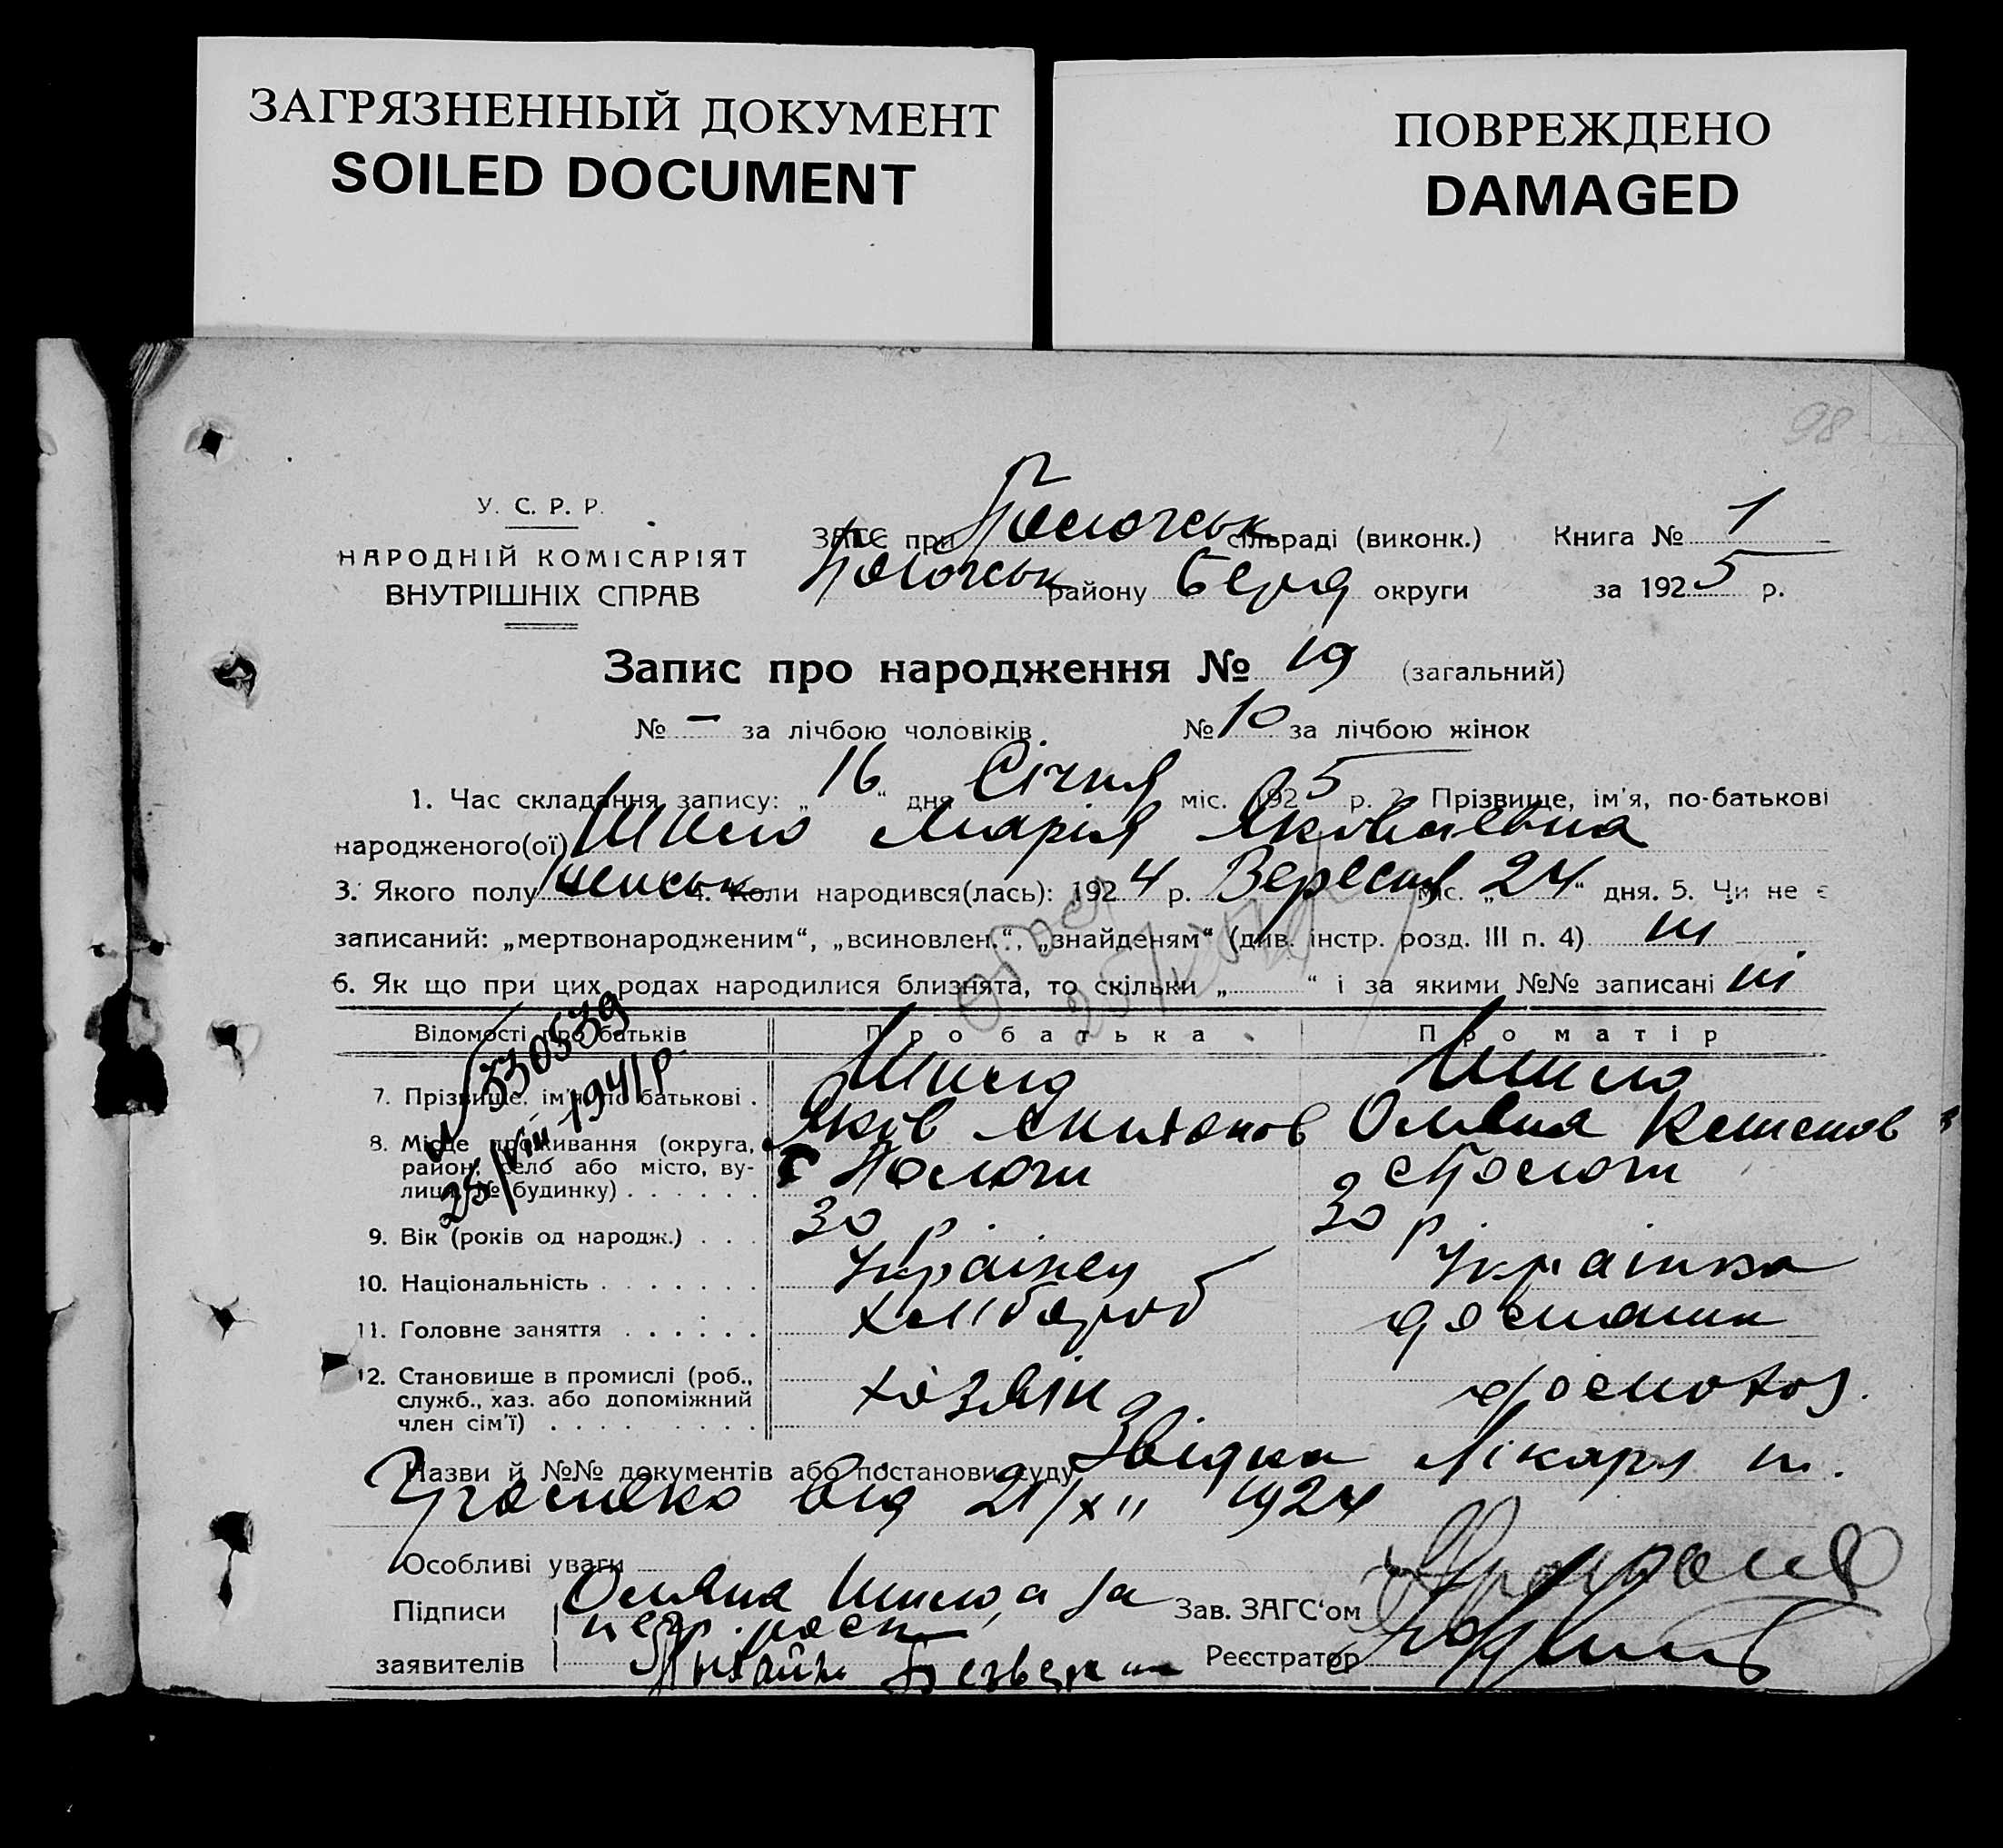 ЗАГРЯЗНЕННЫЙ ДОКУМЕНТ
SOILED DOCUMENT
ПОВРЕЖДЕНО
DAMAGED
98
У. С. Р. Р.
НАРОДНІЙ КОМІСАРІЯТ
ВНУТРІШНІХ СПРАВ
ЗАГС при Пологськ сільраді (виконк.) Книга № 1
Пологськ району Берд округи за 1925 р.
Запис про народження № 19 (загальний)
№ – за лічбою чоловіків. № 10 за лічбою жінок
1. Час складання запису: „16“ дня Січня міс. 1925 р. 2. Прізвище, ім'я, по-батькові
народженого(ої) Шило Марія Яковлевна
3. Якого полу женськ 4. Коли народився(лась): 1924 р. Вересня міс. „24“ дня. 5. Чи не є
записаний: „мертвонародженим“, „всиновлен.“, „знайденям“ (див. інстр. розд. III п. 4) ні
6. Як що при цих родах народилися близнята, то скільки „ “ і за якими №№ записані ні
Відомості про батьків Про батька Про матір
№ 330539
25/VIII-1941 р.
7. Прізвище, ім'я, по батькові . Шило Шило
Яків Омеляна
8. Місце проживання (округа, район, село або місто, вулиця, № будинку) . . . . . . с Пологи с Пологи
9. Вік (років од народж.) . . . 30 р. 30 р
10. Національність . . . . . . . Українец Українка
11. Головне заняття . . . . . . хлібороб домашн
12. Становище в промислі (роб., служб., хаз. або допоміжний член сім'ї) . . . . . . . . . хозяін домохоз.
Назви й №№ документів або постанови суду Звідка Лікаря п.
від 21/XII 1924
Особливі уваги
Підписи Омеляна Шило, а за
заявителів
Зав. ЗАГС‘ом
Реєстратор